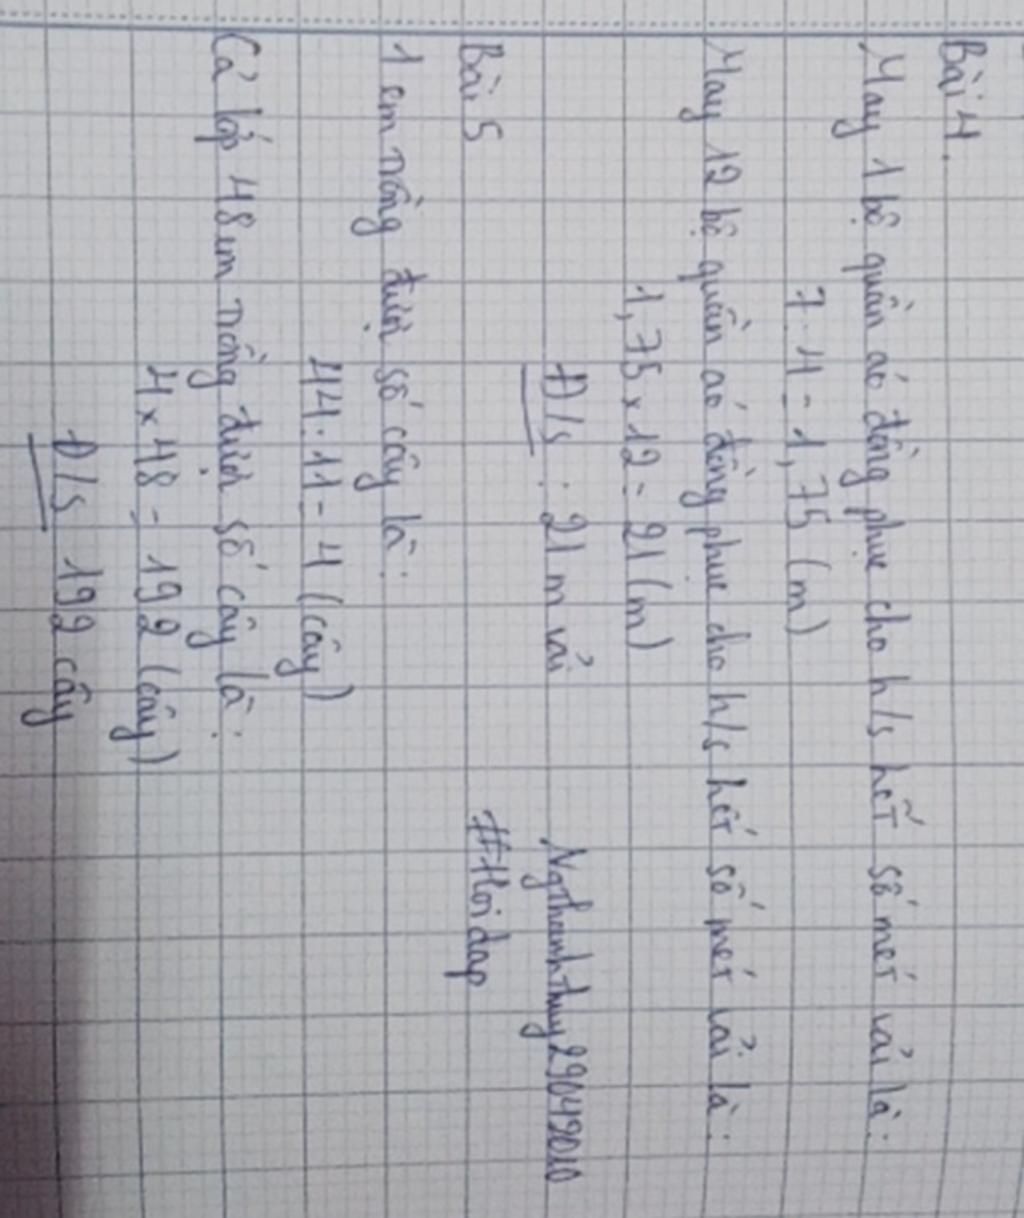 Bài 4.
May 1 bộ quần áo đồng phục cho h/s hết số mét vải là:
7 : 4 = 1,75 (m)
May 12 bộ quần áo đồng phục cho h/s hết số mét vải là:
1,75 x 12 = 21 (m)
Đ/s : 21 m vải
Ngthanhthuy29049010
Bài 5
#Hoidap
1 em trồng được số cây là:
44 : 11 = 4 (cây)
Cả lớp 48 em trồng được số cây là:
4 x 48 = 192 (cây)
Đ/s 192 cây